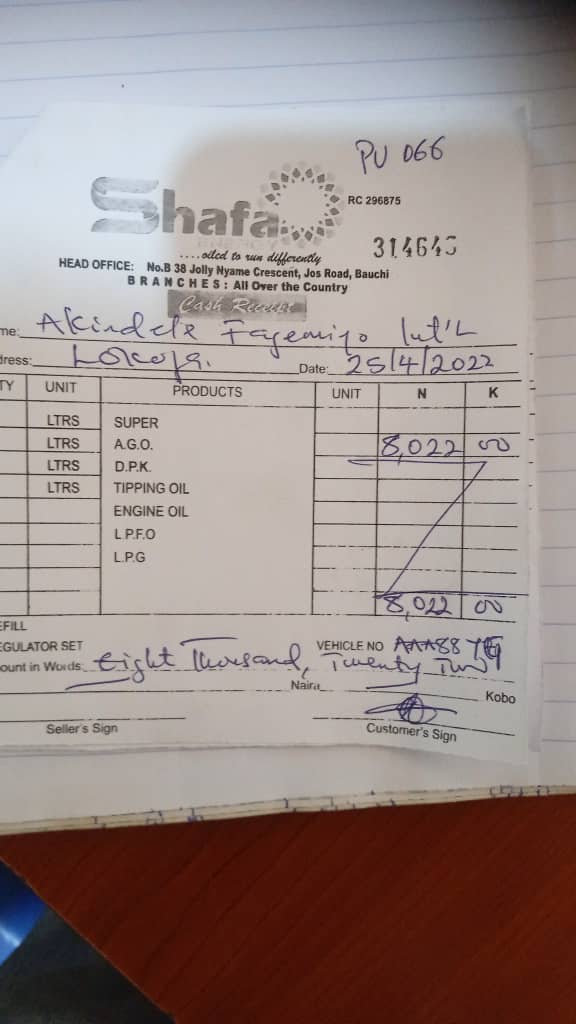 PU 066
Shafa
ENERGY
RC 296875
....oiled to run differently
314645
HEAD OFFICE: No.B 38 Jolly Nyame Crescent, Jos Road, Bauchi
BRANCHES: All Over the Country
Cash Receipt
me: Akindele Fagemiyo Int'L
dress: Lokoja. Date: 25/4/2022
TY UNIT PRODUCTS UNIT N K
LTRS SUPER
LTRS A.G.O. 8,022 00
LTRS D.P.K.
LTRS TIPPING OIL
ENGINE OIL
L P.F.O
L.P.G
8,022 00
EFILL
EGULATOR SET VEHICLE NO AAA88
ount in Words: Eight Thousand, Twenty Two
Naira Kobo
Seller's Sign Customer's Sign